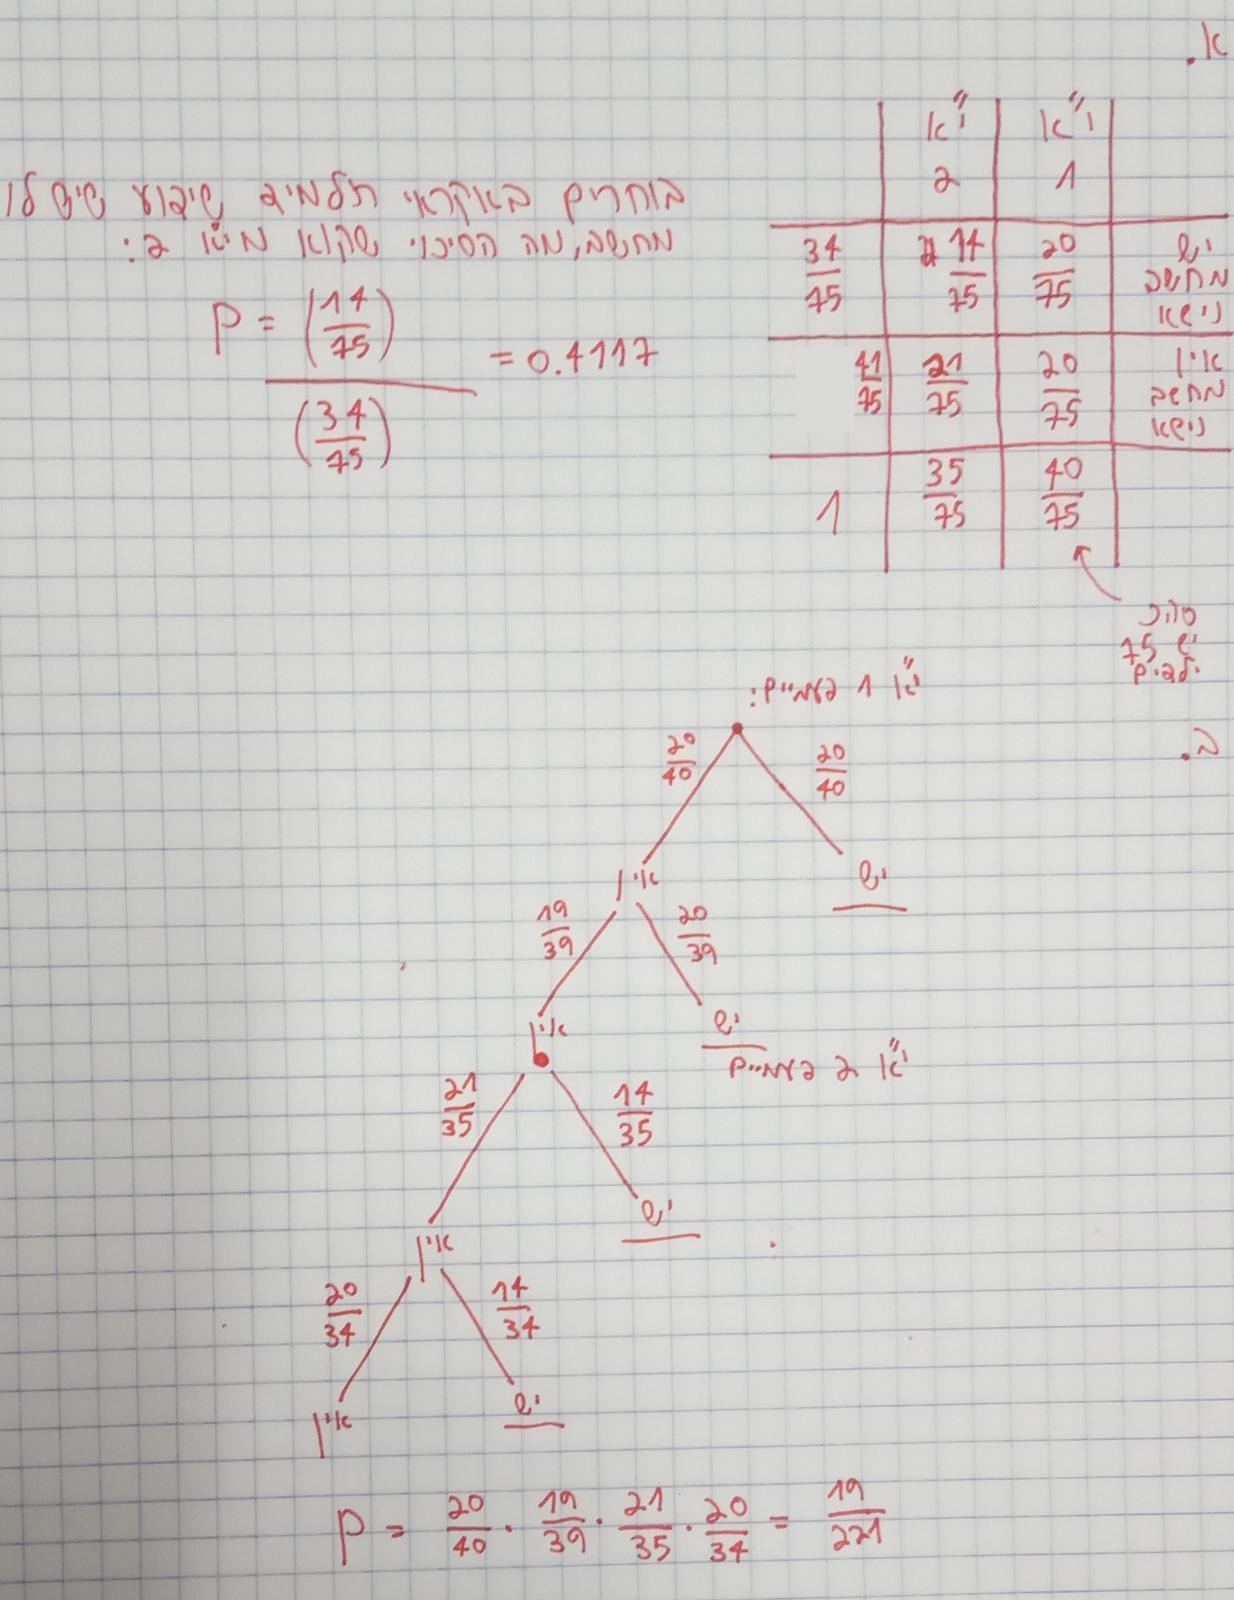 א.
י"א 1 | י"א 2
יש מחשב נישא | 20/75 | 14/75 | 34/75
אין מחשב נישא | 20/75 | 21/75 | 41/75
40/75 | 35/75 | 1
סהכ
יש 75
ילדים
בוחרים באקראי תלמיד שידוע שיש לו
מחשב, מה הסיכוי שהוא מי"א 2:
P = (14/75) / (34/75) = 0.4117
ב.
י"א 1 פעמיים:
20/40 20/40
אין יש
19/39 20/39
אין יש
י"א 2 פעמיים
21/35 14/35
אין יש
20/34 14/34
אין יש
P = 20/40 · 19/39 · 21/35 · 20/34 = 19/221